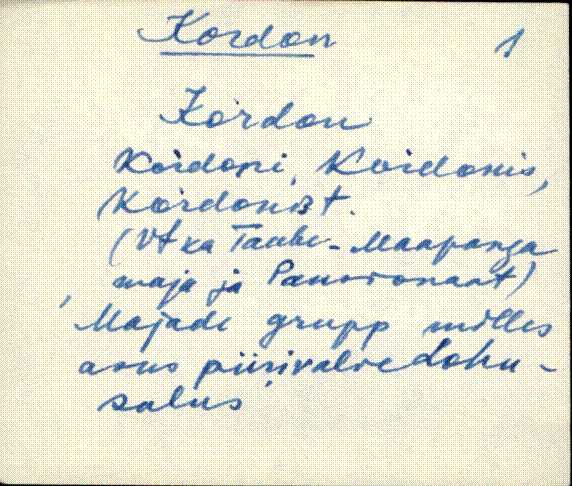 Kordon 1
Kordon
Kordoni, Kordonis,
Kordonist.
(Vt ka Taube-Maapanga
maja ja Pansionaat)
Majade grupp milles
asus piirivalve kohu-
salus